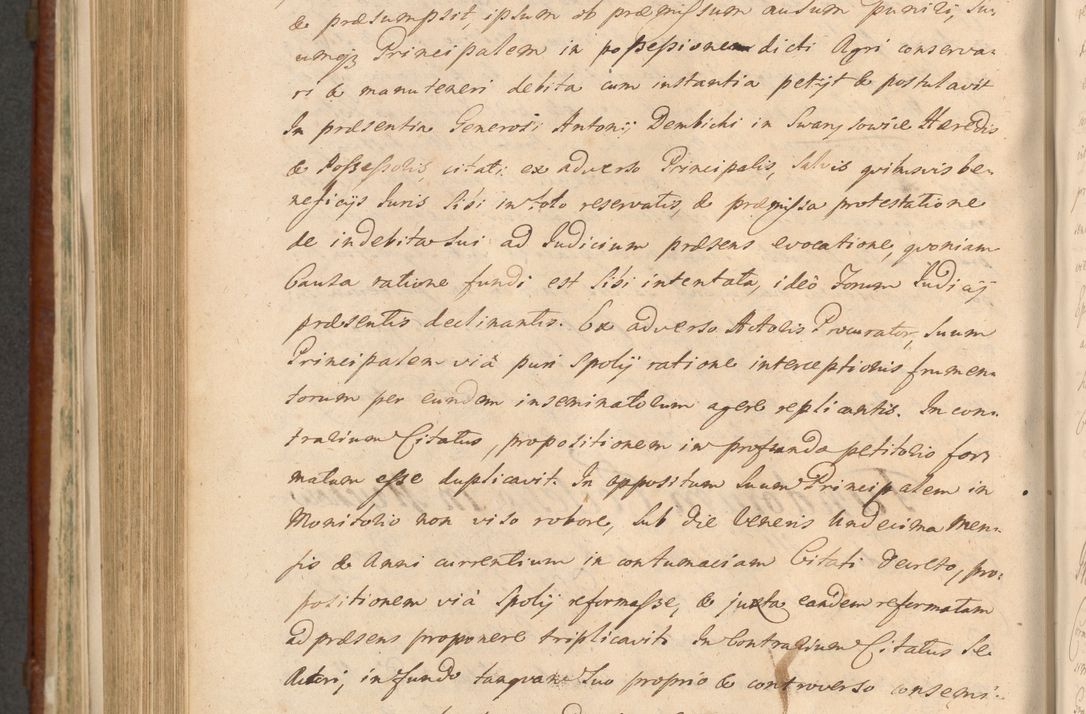 & præsumpsit, ipsum ob præmissum ausum puniri, su-
umq3 Principalem in possessionem dicti Agri conserva-
ri & manuteneri debita cum instantia petijt & postulavit
In præsentia Generosi Antonij Dembicki in Swarysowice Hæredis
& Possessoris, citati ex adverso Principalis, salvis quibusvis be-
neficijs Juris sibi in toto reservatis, & præmissa protestatione
de indebita sui ad Judicium præsens evocatione, quoniam
Causa ratione fundi est sibi intentata, ideò Forum Judicij
præsentis declinantis. Ex adverso Actoris Procurator, suum
Principalem vià puri spolij ratione interceptionis frumen-
torum per eundem inseminatorum agere replicantis. In con-
trarium Citatus, propositionem in profunda petitorio for-
matum esse duplicavit. In oppositum suum Principalem in
Monitorio non viso robore, sub die Veneris Undecima Men-
sis & Anni currentium in contumaciam Citati Decreto, pro-
positionem vià spolij reformasse, & juxta eandem reformatam
ad præsens proponere triplicavit. In Contrarium Citatus se
Actori, in fundo tanquam suo proprio & controverso consemi-